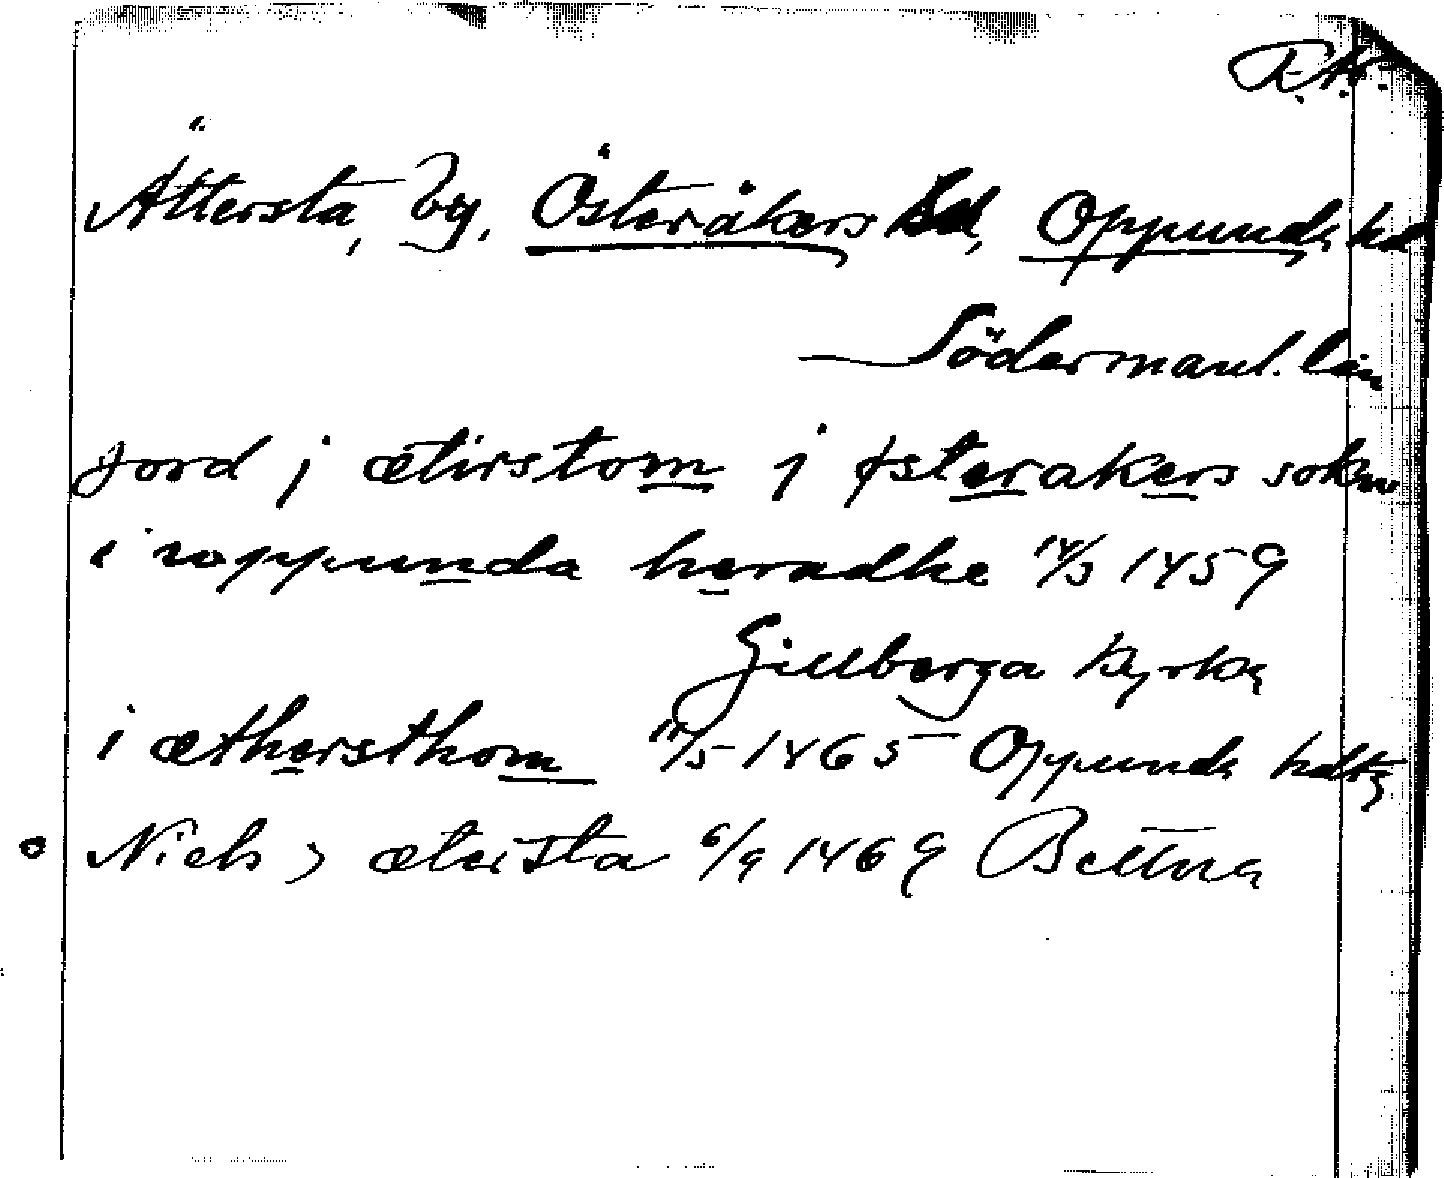 Ättersta, by, Österåkers sd, Oppunda hd
Södermanl. län
jord j ætirstom j østerakers sokn
i woppunda heradhe 14/5 1459
Gillberga kyrka
i æthersthom 11/5 1465 Oppunda hdtg
Niels j æteista 6/9 1469 Bettna